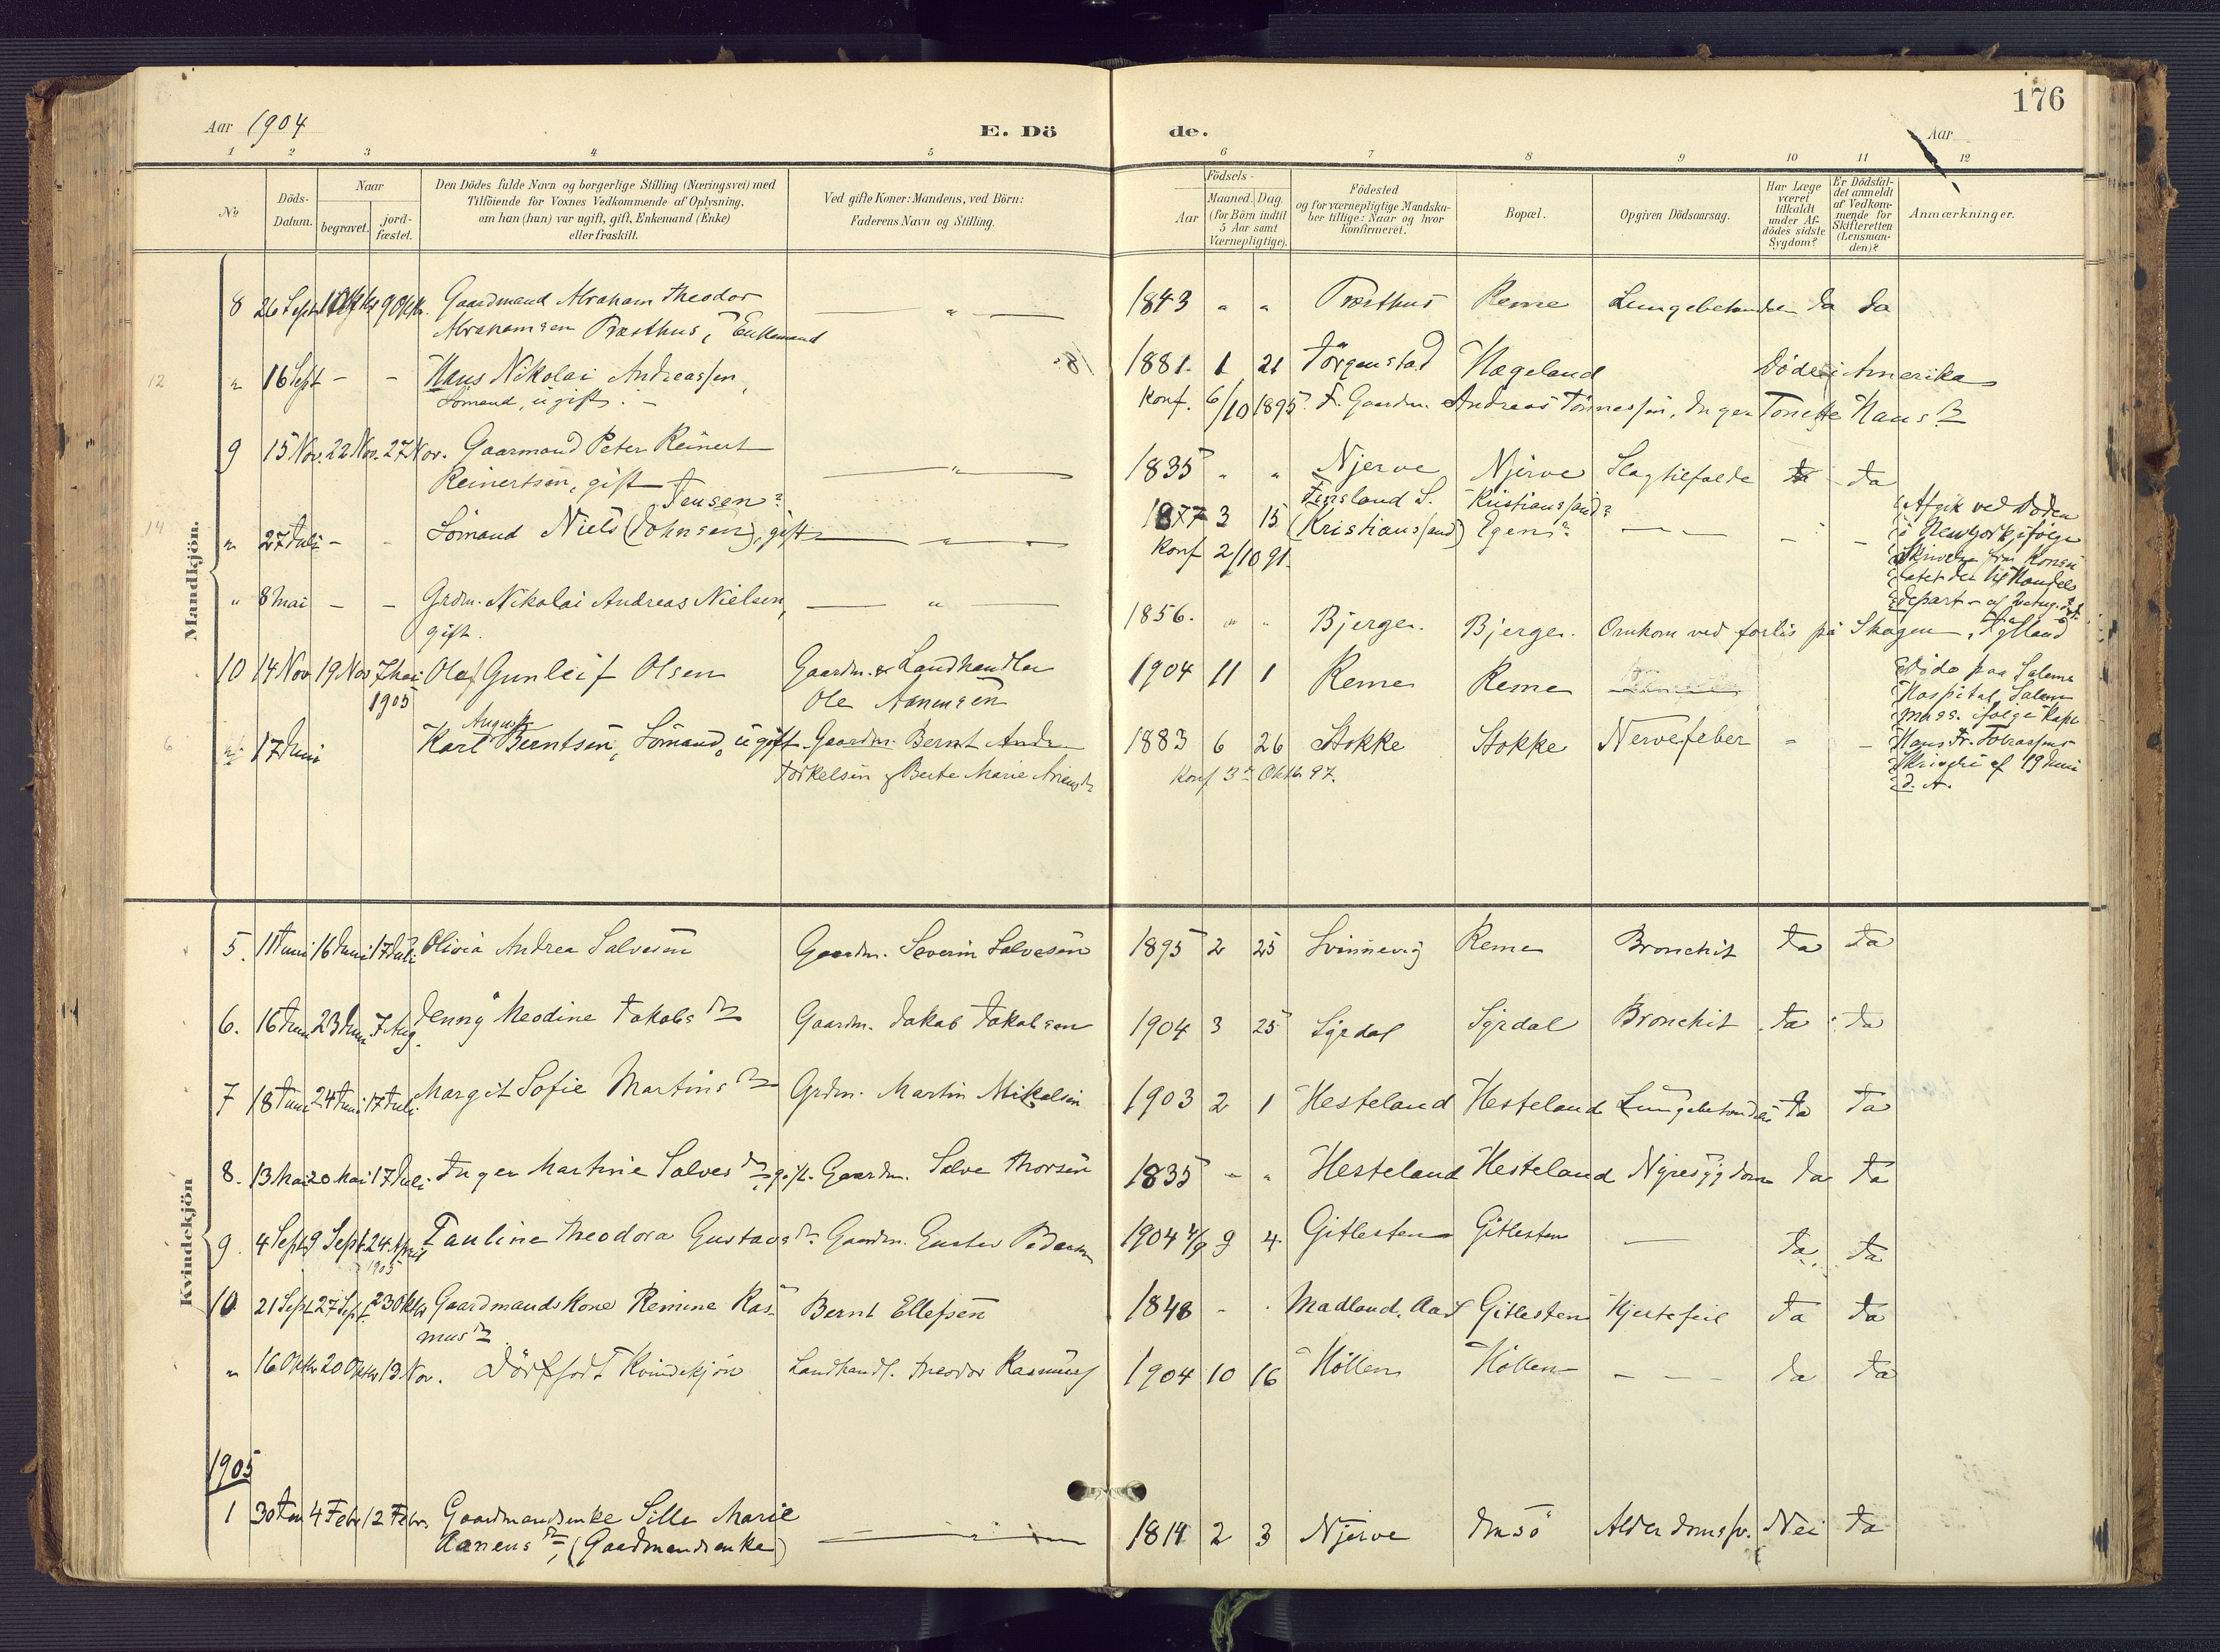 176
Aar 1904
E. Dö
de.
Aar
1 2 3 4 5 6 7 8 9 10 11 12
No
Döds-
Datum.
Naar
begravet.
jord-
fæstet.
Den Dödes fulde Navn og borgerlige Stilling (Næringsvei) med
Tilföiende for Voxnes Vedkommende af Oplysning,
om han (hun) var ugift, gift, Enkemand (Enke)
eller fraskilt.
Ved gifte Koner: Mandens, ved Börn:
Faderens Navn og Stilling.
Födsels-
Aar
Maaned. Dag.
(for Börn indtil
5 Aar samt
Værnepligtige).
Födested
og for værnepligtige Mandska-
ber tillige: Naar og hvor
konfirmeret.
Bopæl.
Opgiven Dödsaarsag.
Har Læge
været
tilkaldt
under Af-
dödes sidste
Sygdom?
Er Dödsfal-
det anmeldt
af Vedkom-
mende for
Skifteretten
(Lensman-
den)?
Anmærkninger.
Mandkjön.
8 26 Sept 9 Oktr. Gaardmand Abraham Theodor
Abrahamsen Præsthus, Enkemand
1843 " " Præsthus Reme Lungebetændelse Ja Ja
12 " 16 Sept - - Hans Nikolai Andreassen,
Sömand, ugift. -
1881. 1 21 Jörgenstad Hægeland Döde i Amerika
Konf. 6/10 1895. F. Gaardm. Andreas Tönnessen, Inger Tonette Hansdr
9 15 Nov. 22 Nov. 27 Nov. Gaarmand Peter Reinert
Reinertsen, gift
1835 " " Njerve Njerve Slagtilfælde Ja Ja
14 " 27 Juli - - Jensen?
Sömand Niels (Johnsen), gift
1877 3 15 Finsland S. (Kristianssand) Kristianssand? Egens?
Konf 2/10 91.
Afgik ved Döden
i Newyork, ifölge
Skrivelse fra Konsu
latet der til Handels
depart-
" 8 Mai - - Grdm. Nikolai Andreas Nielsen,
gift.
1856. " " Bjerge. Bjerge. Omkom ved forlis på Skagen, Jylland
10 14 Nov 19 Nov 7 Mai
1905
Olaf Gunleif Olsen Gaardm. & Landhandler
Ole Aanensen
1904 11 1 Reme Reme
6 " 17 Juni August
Karl Berntsen, Sömand, ugift Gaardm. Bernt Andr.
Torkelsen & Berte Marie
1883 6 26 Stokke Stokke Nervefeber - -
Konf 3die Oktb. 97.
Döde paa Salems
Hospital, Salem
Mass. fölge Kapt.
Hans Fr. Tobiassens
Skrivelse af 19 Juni
d. A.
Kvindekjön
5. 11 Juni 16 Juni 17 Juli Olivia Andrea Salvesen Gaardm. Severin Salvesen 1895 2 25 Svinnevig Reme Bronchit Ja Ja
6. 16 Juni 23 Juni 7 Aug. Jenny Neodine Jakobsdr Gaardm. Jakob Jakobsen 1904 3 25 Syrdal Syrdal Bronchit Ja Ja
7 18 Juni 24 Juni 17 Juli Margit Sofie Martinsdr Grdm. Martin Mikalsen 1903 2 1 Hesteland Hesteland Lungebetændelse Ja Ja
8. 13 Mai 20 Mai 17 Juli Inger Martine Salvesdr, gift. Gaardm. Salve Thorsen 1835 - " Hesteland Hesteland Nyresygdom Ja Ja
9. 4 Sept 9 Sept 24 April
1905
Pauline Theodora Gustavsdr. Gaardm. Gustav Pedersen 1904 4/9 9 4. Gitlesten Gitlesten - Ja Ja
10 21 Sept 27 Sept 23 Oktr Gaardmandskone Remine Ras-
musdr
Bernt Ellefsen 1848 - . Madland, Aas Gitlesten Hjertefeil Ja Ja
" 16 Oktr 20 Oktr 13 Nov. Dödfödt Kvindekjön Landhandl. Theodor Rasmuss 1904 10 16 Höllen Höllen - - - Ja Ja
1905
1 30 Jan 4 Febr 12 Febr. Gaardmandsenke Sille Marie
Aanensdr, (Gaardmandsenke)
1814 2 3 Njerve Imsö Alderdomssv. Nei Ja